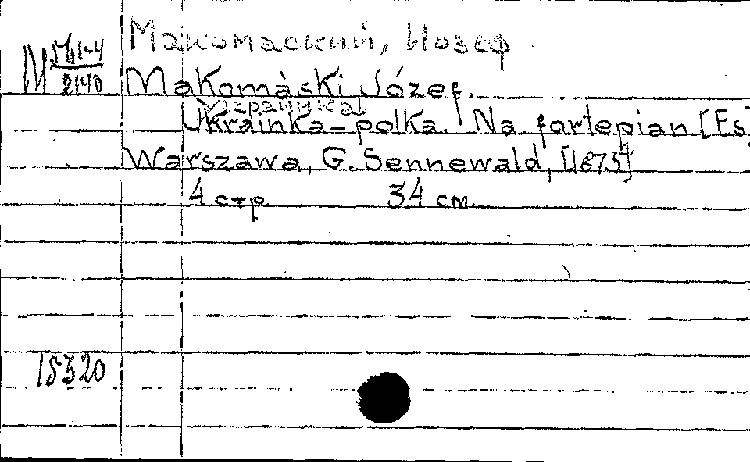 Макомаский, Иозеф.
М
2140
Makomaski Józef.
Украинка
Ukrainka-polka. Na fortepian [Es.
Warszawa, G. Sennewald, [1875]
4 стр. 34 см.
15320